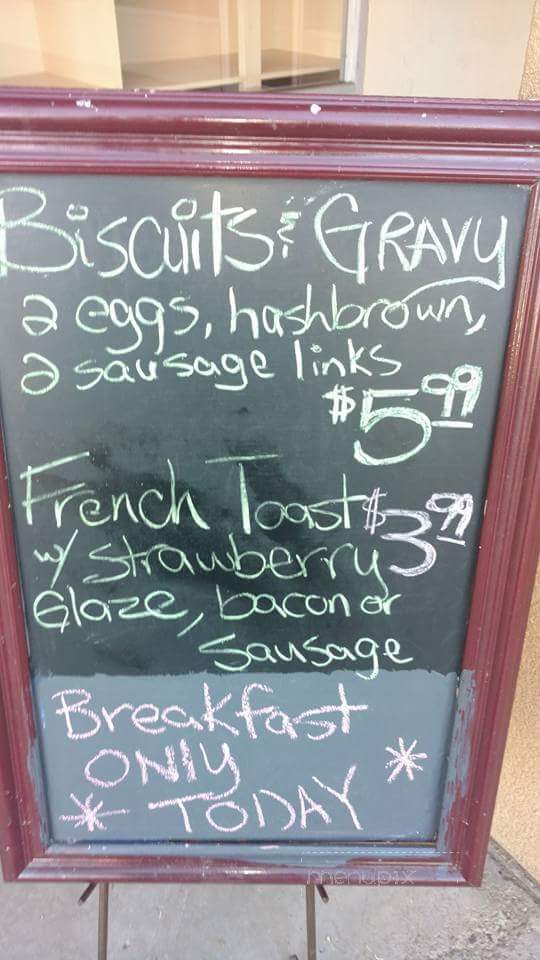 Biscuits & GRAVY
2 eggs, hashbrown,
2 sausage links
$5.99
French Toast $3.99
w/ strawberry
Glaze, bacon or
sausage
Breakfast
ONly *
* TODAY
menupix